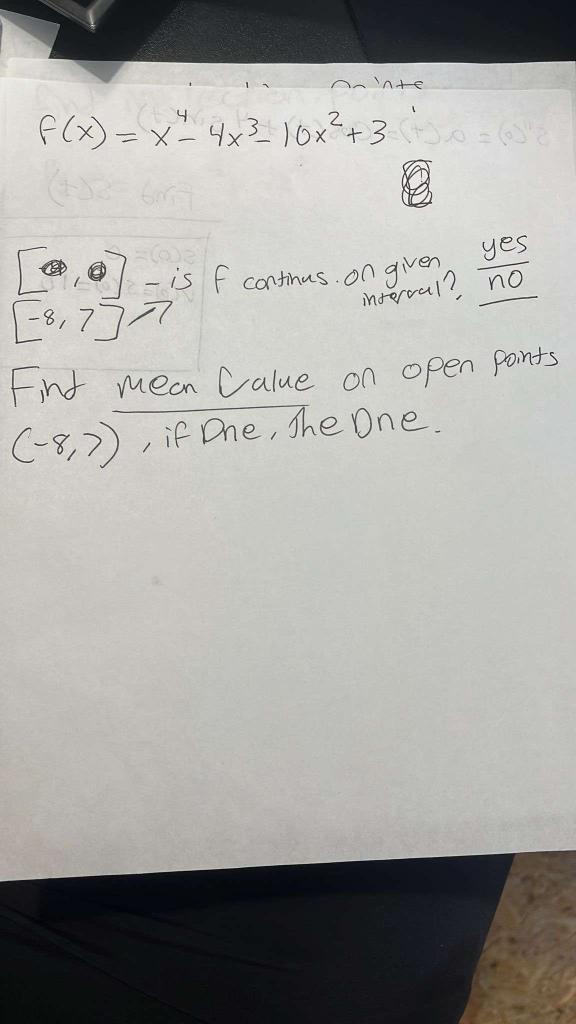 Points
f(x) = x⁴ - 4x³ - 10x² + 3
[ , ] - is f continus. on given interval? yes
no
[-8, 7]
Find mean Value on open points
(-8, 7), if Dne, The Dne.